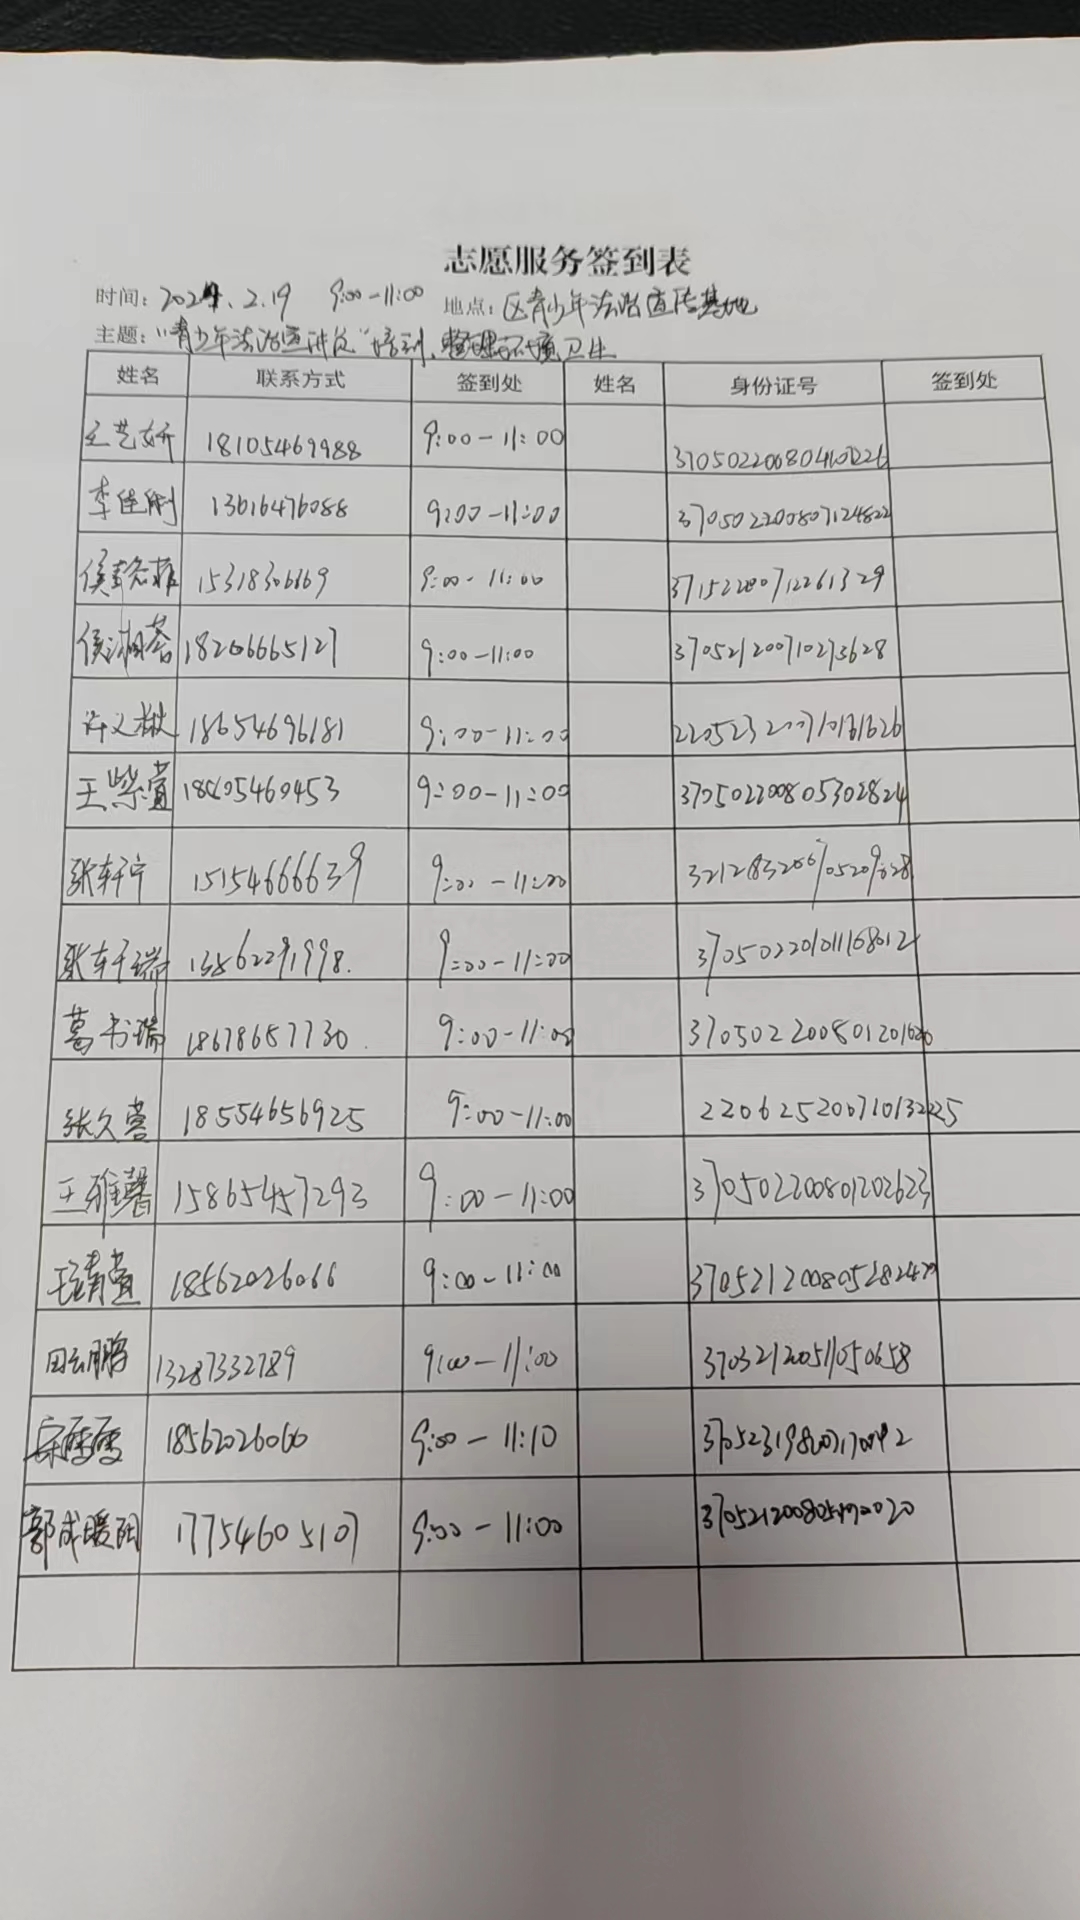 志愿服务签到表
时间: 2024.2.19 9:00-11:00 地点: 区青少年法治宣传基地
主题: "青少年法治宣讲员"培训、整理环境卫生
姓名 联系方式 签到处 姓名 身份证号 签到处
王艺妍 18105469988 9:00-11:00
李佳俐 13616476088 9:00-11:00 370502200807124822
侯 15318306669 9:00-11:00
侯湘荟 18266665127 9:00-11:00 370521200710273628
许 18654696181 9:00-11:00
王紫萱 9:00-11:00 370502200805302824
张轩宁 15154666639 9:00-11:00
张轩瑞 9:00-11:00 370502201011168012
葛书瑞 18678657730 9:00-11:00
张久蓉 18554656925 9:00-11:00 220625200710132225
王雅馨 15865457293 9:00-11:00 370502200801202623
18562026066 9:00-11:00
田云鹏 13287332789 9:00-11:00 370321200511050658
宋 9:00-11:10
郭成暖阳 17754605107 9:00-11:00